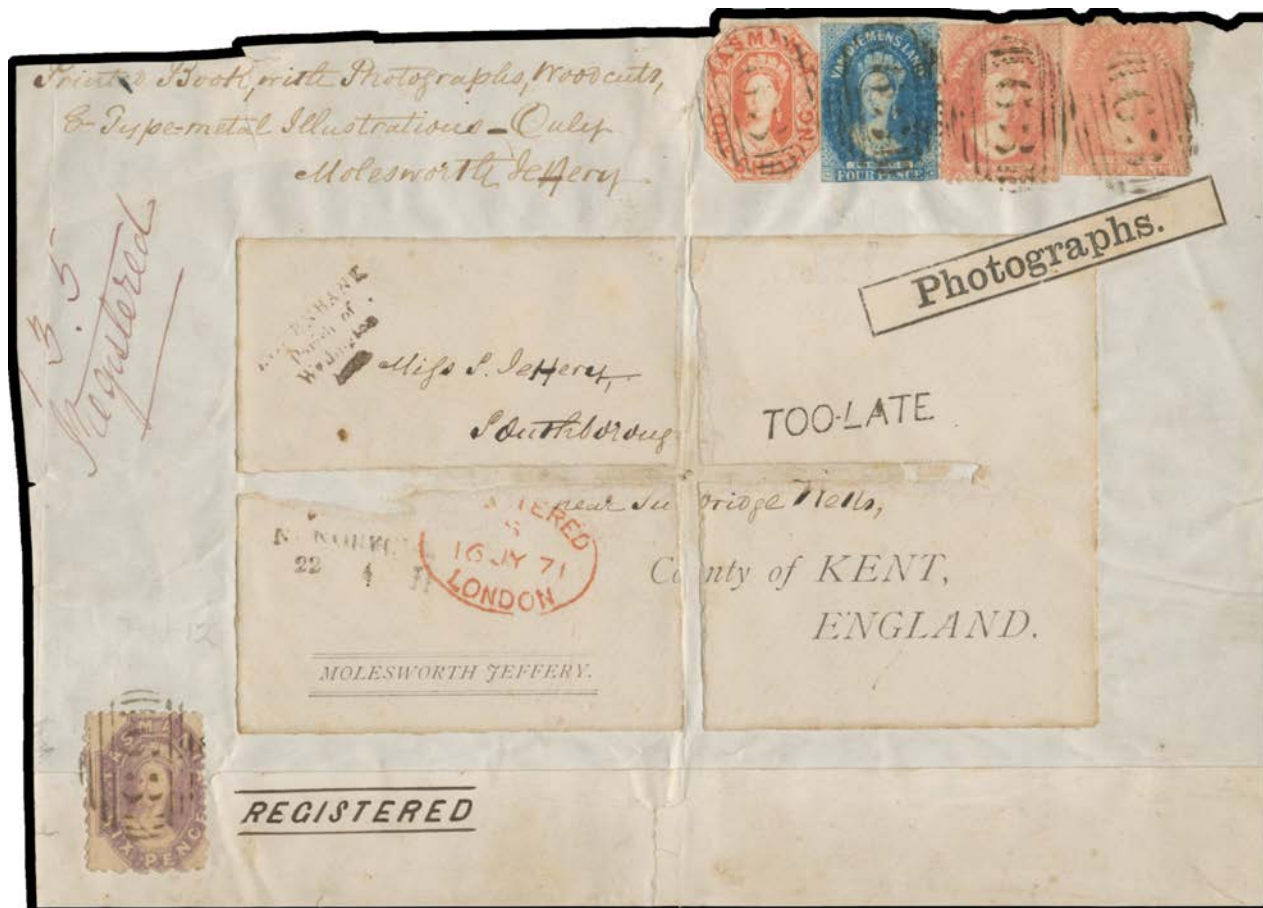 Printed Book, with Photographs, Woodcuts,
& Type-metal Illustrations - Only
Molesworth Jeffery
TASMANIA
SHILLING
VAN DIEMENS LAND
FOUR PENCE
Photographs.
Registered
Parish of
Miss S. Jeffery,
Southboroug
TOO-LATE
near Tu bridge Wells,
TERED
16 JY 71
LONDON
22 4
C unty of KENT,
ENGLAND.
MOLESWORTH JEFFERY.
SIX PENCE
REGISTERED